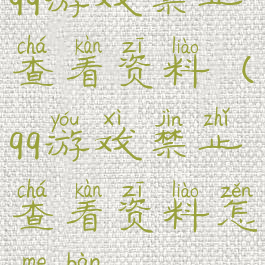 qq游戏禁止
chá kàn zī liào
查看资料(
yóu xì jìn zhǐ
qq游戏禁止
chá kàn zī liào zěn
查看资料怎
me bàn